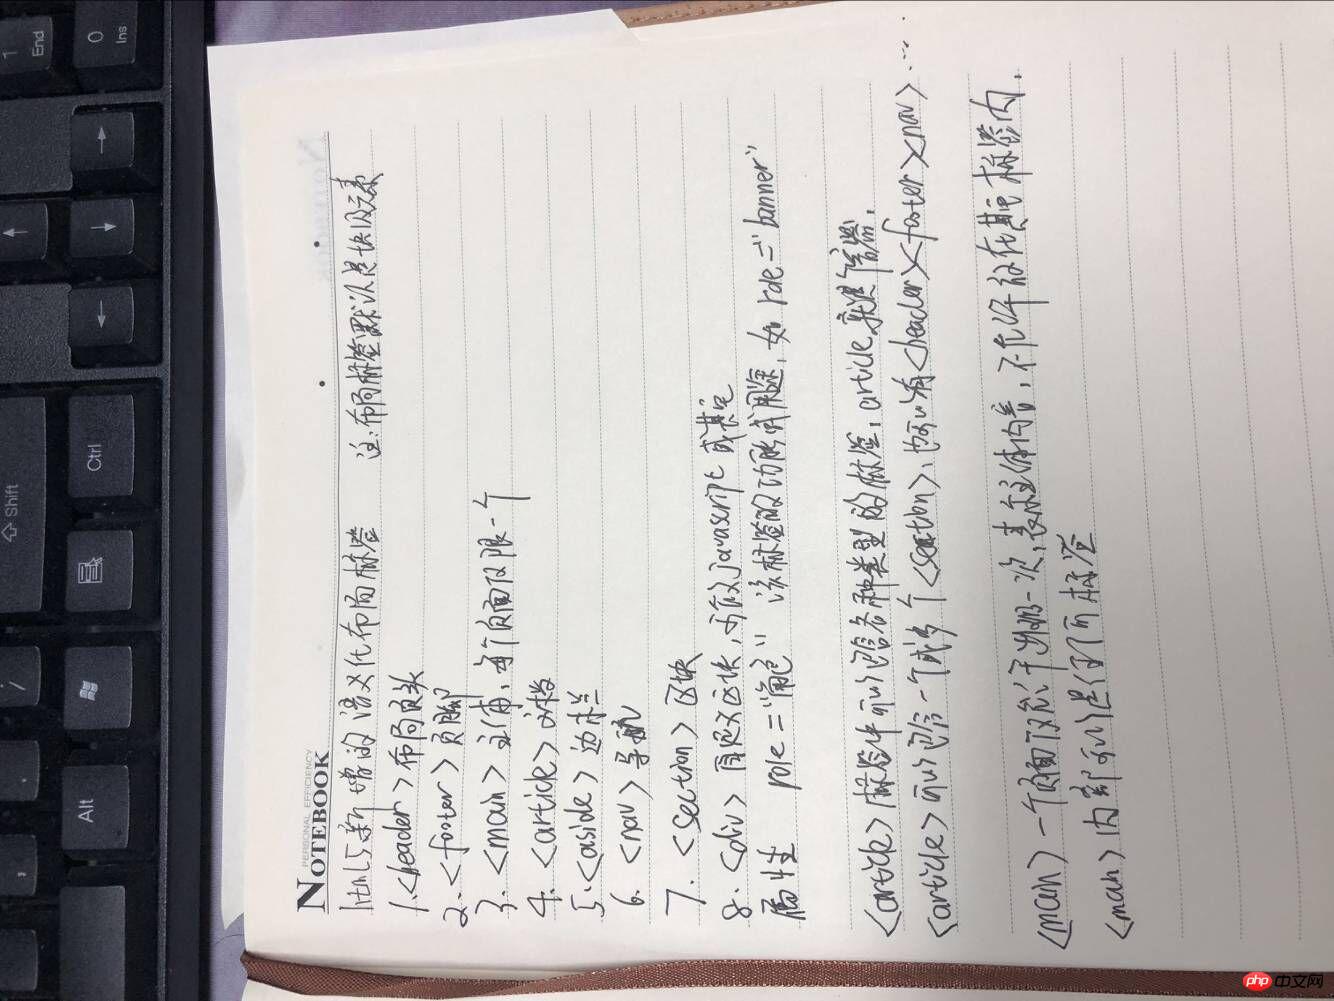 PERSONAL EFFICIENCY
NOTEBOOK
html5新增的语义化布局标签 注:布局标签默认是块级元素
1.<header>布局页头
2.<footer>页脚
3.<main>主体,每个页面仅限一个
4.<article>文档
5.<aside>边栏
6.<nav>导航
7.<section>区块
8.<div>自定义区块,可以JavaScript或其它
属性 role="角色" 该标签的功能或用途,如role="banner"
<article>标签中可以包含各种类型的标签,article就是个容器.
<article>可以包含一个或多个<section>,也可以有<header><footer><nav>...
<main>一个页面仅允许出现一次,表示主体内容,不允许放在其它标签内.
<main>内部可以是任何标签
1 End
0 Ins
Shift
Ctrl
Alt
php中文网